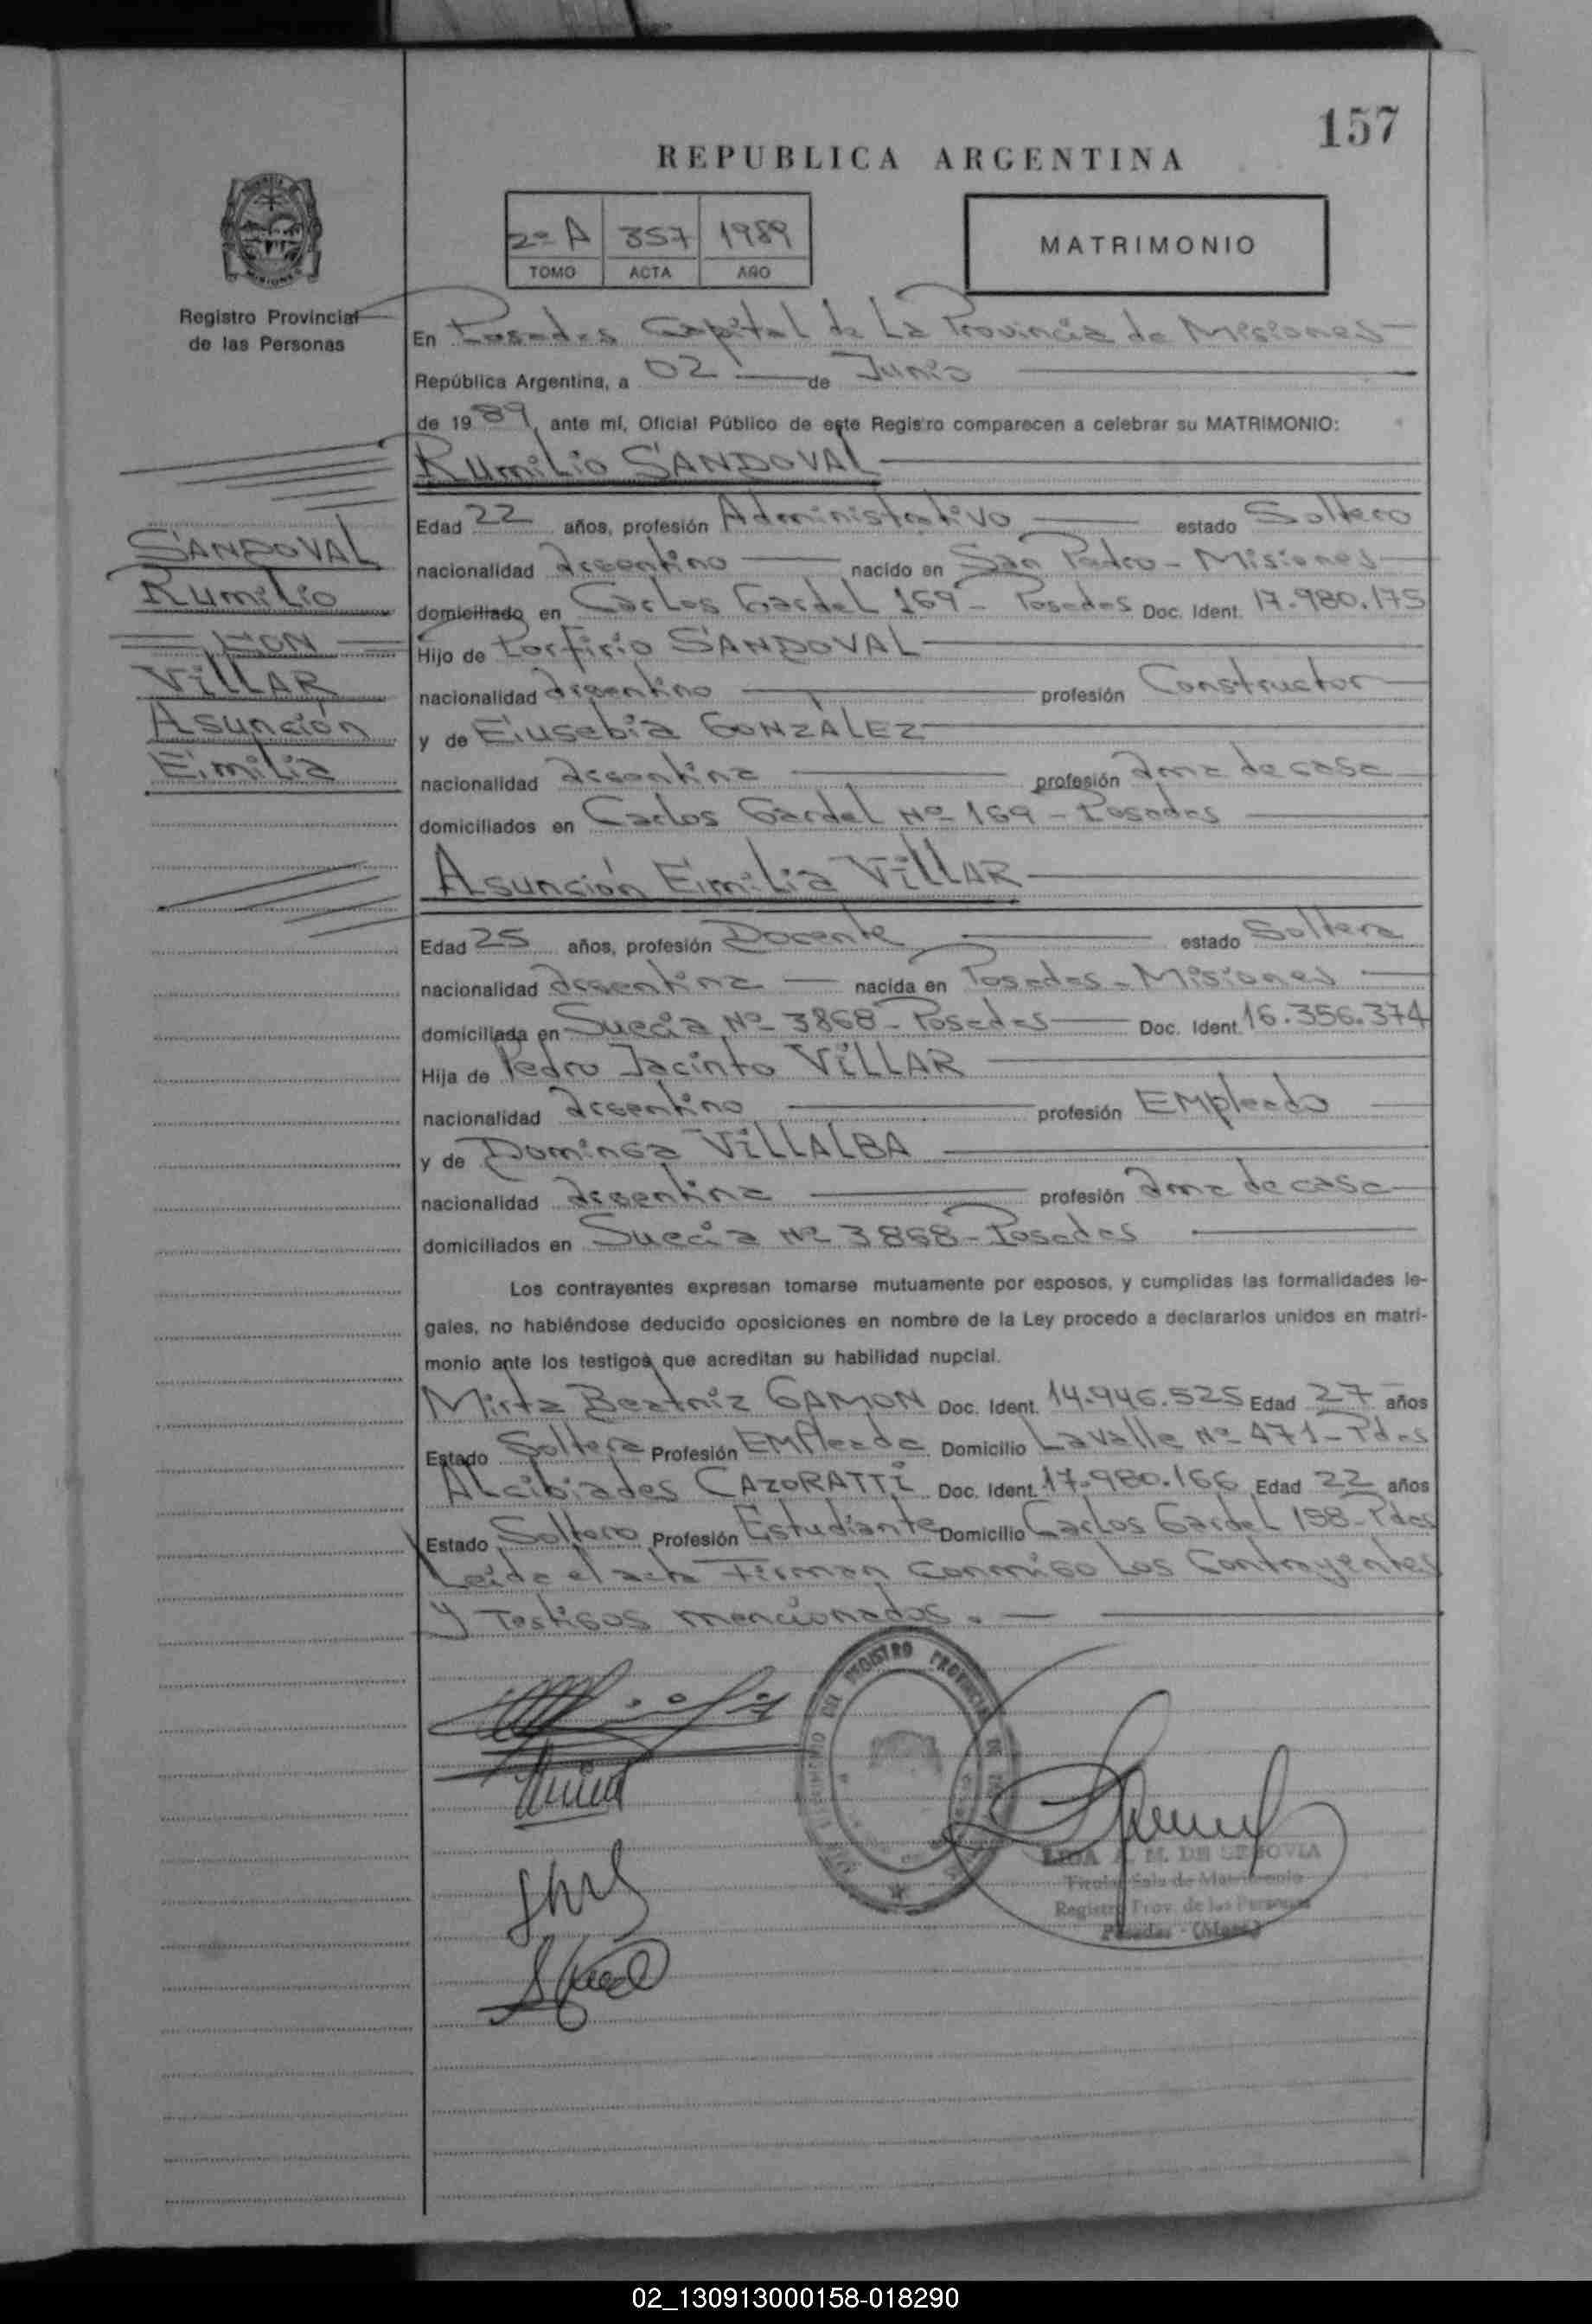 157
REPUBLICA ARGENTINA
2º A 357 1989
TOMO ACTA AÑO
MATRIMONIO
Registro Provincial
de las Personas
SANDOVAL
Rumilio
CON
VILLAR
Asunción
Emilia
En Posadas Capital de La Provincia de Misiones
República Argentina, a 02 de Junio
de 1989, ante mí, Oficial Público de este Registro comparecen a celebrar su MATRIMONIO:
Rumilio SANDOVAL
Edad 22 años, profesión Administrativo estado Soltero
nacionalidad argentino nacido en San Pedro - Misiones
domiciliado en Carlos Gardel 169 - Posadas Doc. Ident. 17.980.175
Hijo de Porfirio SANDOVAL
nacionalidad argentino profesión Constructor
y de Eusebia GONZÁLEZ
nacionalidad argentina profesión ama de casa
domiciliados en Carlos Gardel Nº 169 - Posadas
Asunción Emilia VILLAR
Edad 25 años, profesión Docente estado Soltera
nacionalidad argentina nacida en Posadas - Misiones
domiciliada en Suecia Nº 3868 - Posadas Doc. Ident. 16.356.374
Hija de Pedro Jacinto VILLAR
nacionalidad argentino profesión Empleado
y de Dominga VILLALBA
nacionalidad argentina profesión ama de casa
domiciliados en Suecia Nº 3868 - Posadas
Los contrayentes expresan tomarse mutuamente por esposos, y cumplidas las formalidades le-
gales, no habiéndose deducido oposiciones en nombre de la Ley procedo a declararlos unidos en matri-
monio ante los testigos que acreditan su habilidad nupcial.
Mirta Beatriz GAMON Doc. Ident. 14.946.525 Edad 27 años
Estado Soltera Profesión Empleada Domicilio Lavalle Nº 471 - Pdas
Alcibiades CAZORATTI Doc. Ident. 17.980.166 Edad 22 años
Estado Soltero Profesión Estudiante Domicilio Carlos Gardel 158 - Pdas
Leida el acta Firman conmigo Los Contrayentes
y Testigos mencionados.
REGISTRO PROVINCIAL DE
A. M. DE SEGOVIA
Titular Sala de Matrimonio
Registro Prov. de las Personas
Posadas - (Mnes)
02_130913000158-018290